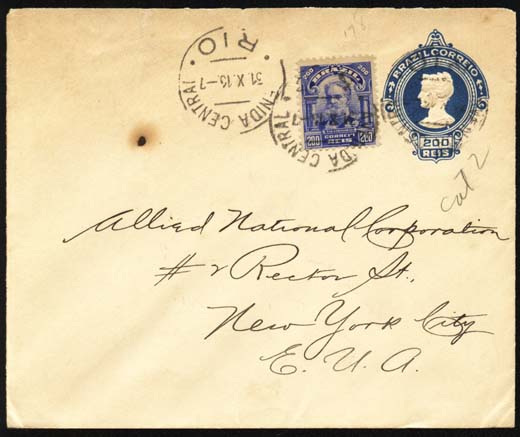 178
BRAZIL CORREIO
200 REIS
200 BRAZIL 200
CORREIO
200 REIS 200
RIO
31 X 16-7
AVENIDA CENTRAL
ENIDA CENTRAL
cat 2
Allied National Corporation
# 2 Rector St.,
New York City
E. U. A.